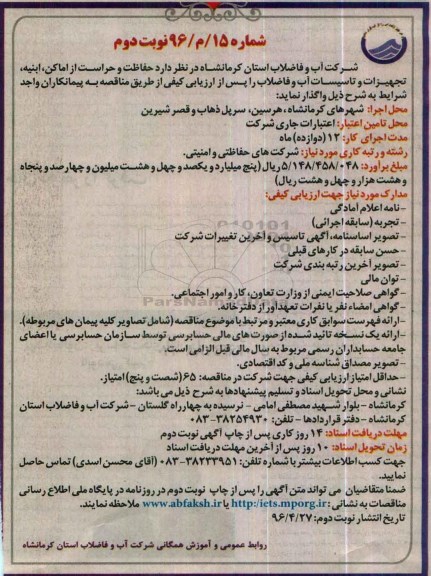 شماره ۱۵/م/۹۶ نوبت دوم
شرکت آب و فاضلاب استان کرمانشاه در نظر دارد حفاظت و حراست از اماکن، ابنیه،
تجهیزات و تاسیسات آب و فاضلاب را پس از ارزیابی کیفی از طریق مناقصه به پیمانکاران واجد
شرایط به شرح ذیل واگذار نماید:
محل اجرا: شهرهای کرمانشاه، هرسین، سرپل ذهاب و قصر شیرین
محل تامین اعتبار: اعتبارات جاری شرکت
مدت اجرای کار: ۱۲ (دوازده) ماه
رشته و رتبه کاری مورد نیاز: شرکت های حفاظتی و امنیتی.
مبلغ برآورد: ۵/۱۴۸/۴۵۸/۰۴۸ ریال (پنج میلیارد و یکصد و چهل و هشت میلیون و چهارصد و پنجاه
و هشت هزار و چهل و هشت ریال)
مدارک مورد نیاز جهت ارزیابی کیفی:
- نامه اعلام آمادگی
- تجربه (سابقه اجرائی)
- تصویر اساسنامه، آگهی تاسیس و آخرین تغییرات شرکت
- حسن سابقه در کارهای قبلی
- تصویر آخرین رتبه بندی شرکت
- توان مالی
- گواهی صلاحیت ایمنی از وزارت تعاون، کار و امور اجتماعی.
- گواهی امضاء نفر یا نفرات تعهدآور از دفترخانه.
- ارائه فهرست سوابق کاری معتبر و مرتبط با موضوع مناقصه (شامل تصاویر کلیه پیمان های مربوطه).
- ارائه یک نسخه تائید شده از صورت های مالی حسابرسی توسط سازمان حسابرسی یا اعضای
جامعه حسابداران رسمی مربوط به سال مالی قبل الزامی است.
- تصویر مصداق شناسه ملی و کد اقتصادی.
- حداقل امتیاز ارزیابی کیفی جهت شرکت در مناقصه: ۶۵ (شصت و پنج) امتیاز.
نشانی و محل تحویل اسناد و تسلیم پیشنهادها به شرح ذیل می باشد:
کرمانشاه - بلوار شهید مصطفی امامی - نرسیده به چهارراه گلستان - شرکت آب و فاضلاب استان
کرمانشاه - دفتر قراردادها - تلفن: ۳۸۲۵۴۹۳۰-۰۸۳
مهلت دریافت اسناد: ۱۴ روز کاری پس از چاپ آگهی نوبت دوم
زمان تحویل اسناد: ۱۰ روز پس از آخرین مهلت دریافت اسناد
جهت کسب اطلاعات بیشتر با شماره تلفن: ۳۸۲۳۳۹۵۱-۰۸۳ (آقای محسن اسدی) تماس حاصل
نمایید.
ضمنا متقاضیان می تواند متن آگهی را پس از چاپ نوبت دوم در روزنامه در پایگاه ملی اطلاع رسانی
مناقصات به نشانی: http://iets.mporg.ir یا www.abfaksh.ir ملاحظه نمایند.
تاریخ انتشار نوبت دوم: ۹۶/۴/۲۷
روابط عمومی و آموزش همگانی شرکت آب و فاضلاب استان کرمانشاه